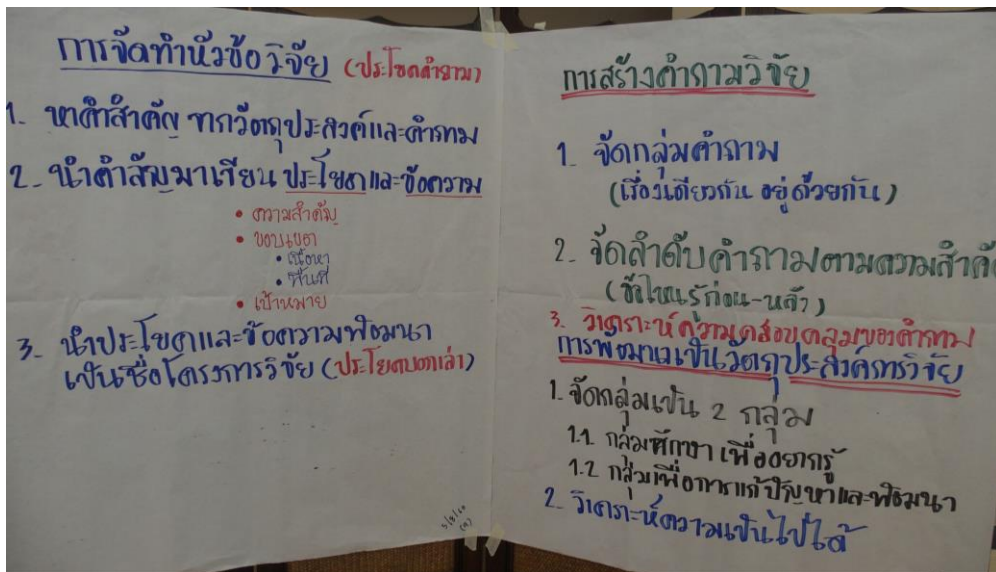 การจัดทำหัวข้อวิจัย (ประโยคคำถาม)
1. หาคำสำคัญ จากวัตถุประสงค์และคำถาม
2. นำคำสัญมาเขียน ประโยคและข้อความ
• ความสำคัญ
• ขอบเขต
• เนื้อหา
• พื้นที่
• เป้าหมาย
3. นำประโยคและข้อความพัฒนา
เป็นชื่อโครงการวิจัย (ประโยคบอกเล่า)
การสร้างคำถามวิจัย
1. จัดกลุ่มคำถาม
(เรื่องเดียวกัน อยู่ด้วยกัน)
2. จัดลำดับคำถามตามความสำคั
(ข้อไหนรู้ก่อน-หลัง)
3. วิเคราะห์ความครอบคลุมของคำถาม
การพัฒนาเป็นวัตถุประสงค์การวิจัย
1. จัดกลุ่มเป็น 2 กลุ่ม
1.1 กลุ่มศึกษา เพื่ออยากรู้
1.2 กลุ่มเพื่อการแก้ปัญหาและพัฒนา
2. วิเคราะห์ความเป็นไปได้